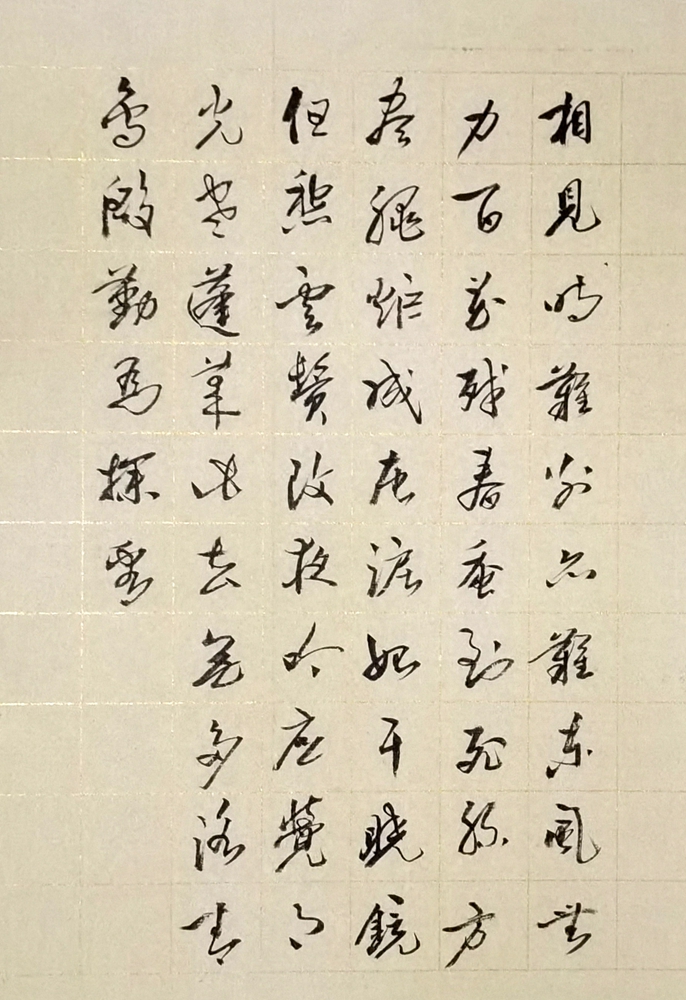 相見時難別亦難東風無
力百花殘春蚕到死絲方
盡蠟炬成灰淚始干曉鏡
但愁雲鬢改夜吟应覺月
光寒蓬萊此去無多路青
鳥殷勤為探看